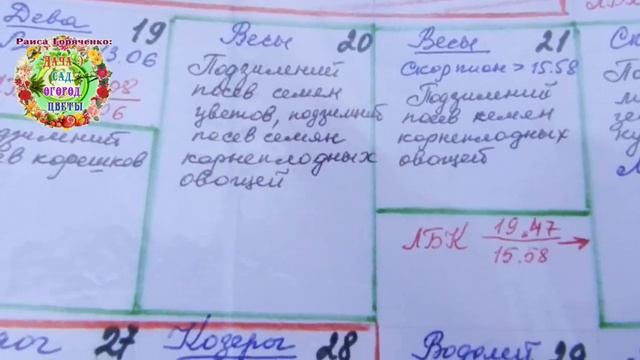 Раиса Горяченко:
ДАЧА
САД
ОГОРОД
ЦВЕТЫ
Дева 19
3.06
6
корешков
Весы 20
Подзимний
посев семен
цветов, подзимний
посев семян
корнеплодных
овощей
Весы 21
Скорпион > 15.58
Подзимний
посев кемен
корнеплодных
овощей
ЛБК 19.47
15.58
27
Козерог 28
Водолей 29